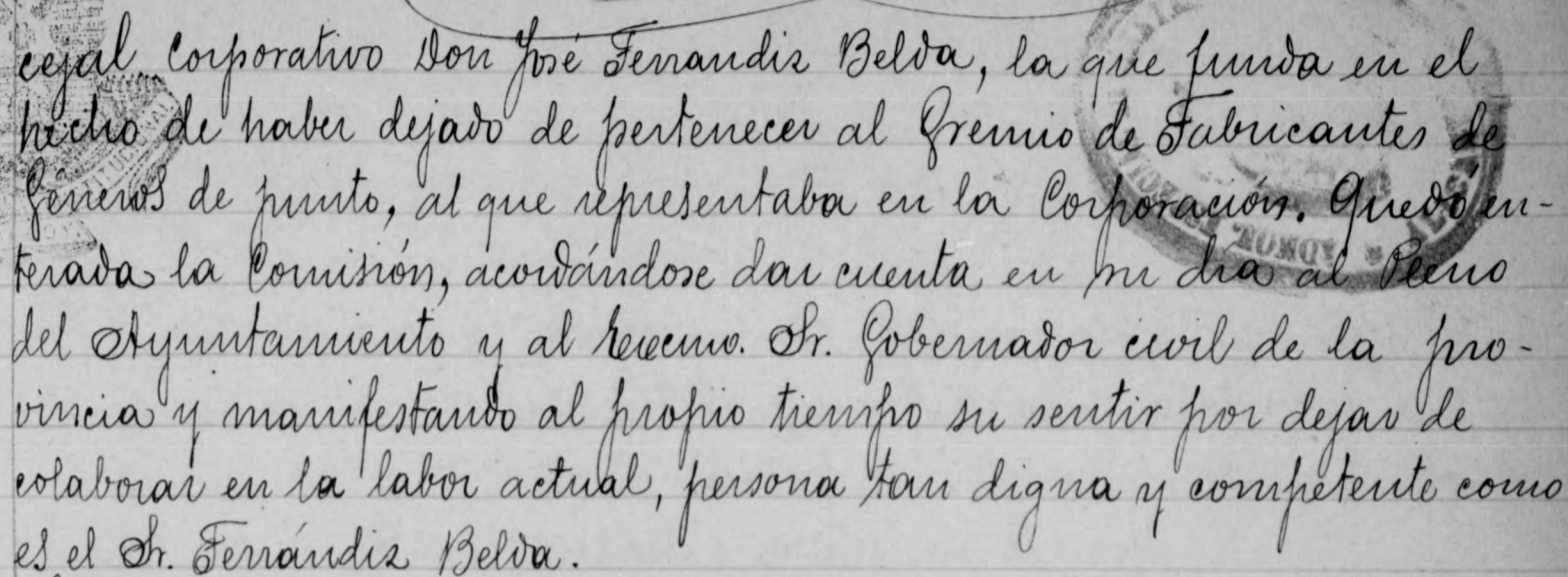 cejal Corporativo Don José Ferrandiz Belda, la que funda en el
hecho de haber dejado de pertenecer al Gremio de Fabricantes de
Géneros de punto, al que representaba en la Corporación. Quedó en-
terada la Comisión, acordándose dar cuenta en su día al Pleno
del Ayuntamiento y al Excmo. Sr. Gobernador civil de la pro-
vincia y manifestando al propio tiempo su sentir por dejar de
colaborar en la labor actual, persona tan digna y competente como
es el Sr. Ferrándiz Belda.